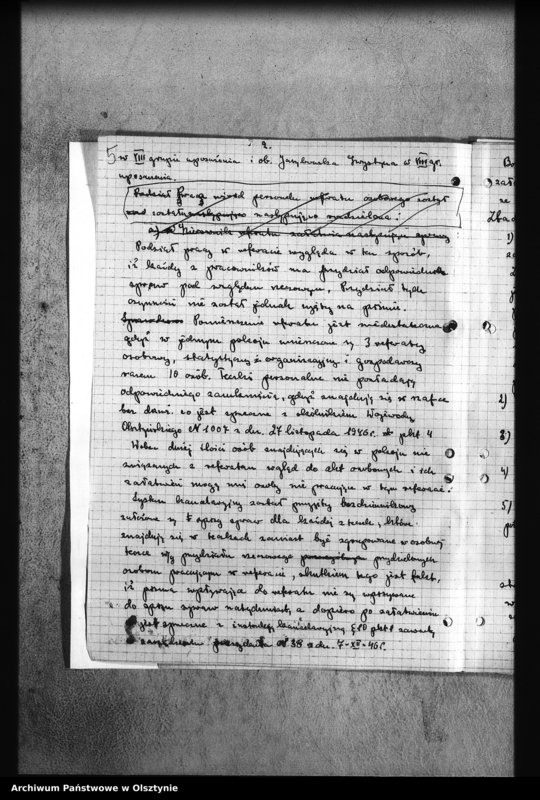 2.
5 w VIII grupie uposażenia i ob. Krystyna w VIII gr.
uposażenia.
Podział pracy wśród personelu referatu osobowego został
następująco
a) Kierownik referatu załatwia następujące sprawy
Podział pracy w referacie wygląda w ten sposób,
iż każdy z pracowników ma przydział odpowiednich
spraw pod względem rzeczowym. Przydział tych
czynności nie został jednak ujęty na piśmie.
Pomieszczenie referatu jest niedostateczne
gdyż w jednym pokoju umieszczone są 3 referaty
osobowy, statystyczny i organizacyjny i gospodarczy
razem 10 osób. Teczki personalne nie posiadają
odpowiedniego zamknięcia, gdyż znajdują się w szafce
bez drzwi. co jest sprzeczne z okólnikiem Wojewody
Olsztyńskiego N 1007 z dn. 27 listopada 1946 r. pkt 4
Wobec dużej ilości osób znajdujących się w pokoju nie
związanych z referatem wgląd do akt osobowych i ich
załatwień mogą mieć osoby nie pracujące w tym referacie.
System kancelaryjny został przyjęty bezdziennikowy
założone są spisy spraw dla każdej z teczek, które
znajdują się w teczkach zamiast być zgrupowane w osobnej
teczce wg przydziału rzeczowego przydzielonych
osobom pracującym w referacie, skutkiem tego jest fakt,
iż pisma wpływające do referatu nie są wpisywane
do spisu spraw natychmiast, a dopiero po załatwieniu
jest sprzeczne z instrukcją kancelaryjną § 10 pkt 1
zarządzeniem N 38 z dn. 7-XII-46 r.
1)
2)
3)
4)
5)
Archiwum Państwowe w Olsztynie